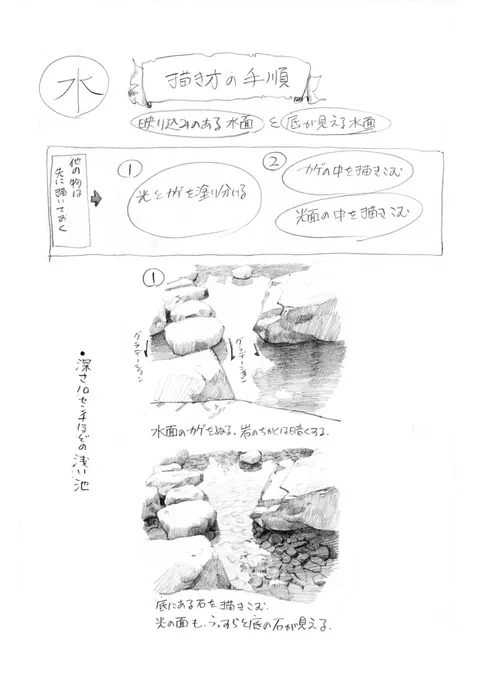 水
描き方の手順
映り込みのある水面 と 底が見える水面
他の物は
先に描いておく
①
光とカゲを塗り分ける
②
カゲの中を描きこむ
光面の中を描きこむ
①
グラデーション
グラデーション
・深さ10センチほどの浅い池
水面のカゲをぬる。岩のちかくは暗くする。
底にある石を描きこむ.
光の面も、うっすらと底の石が見える.